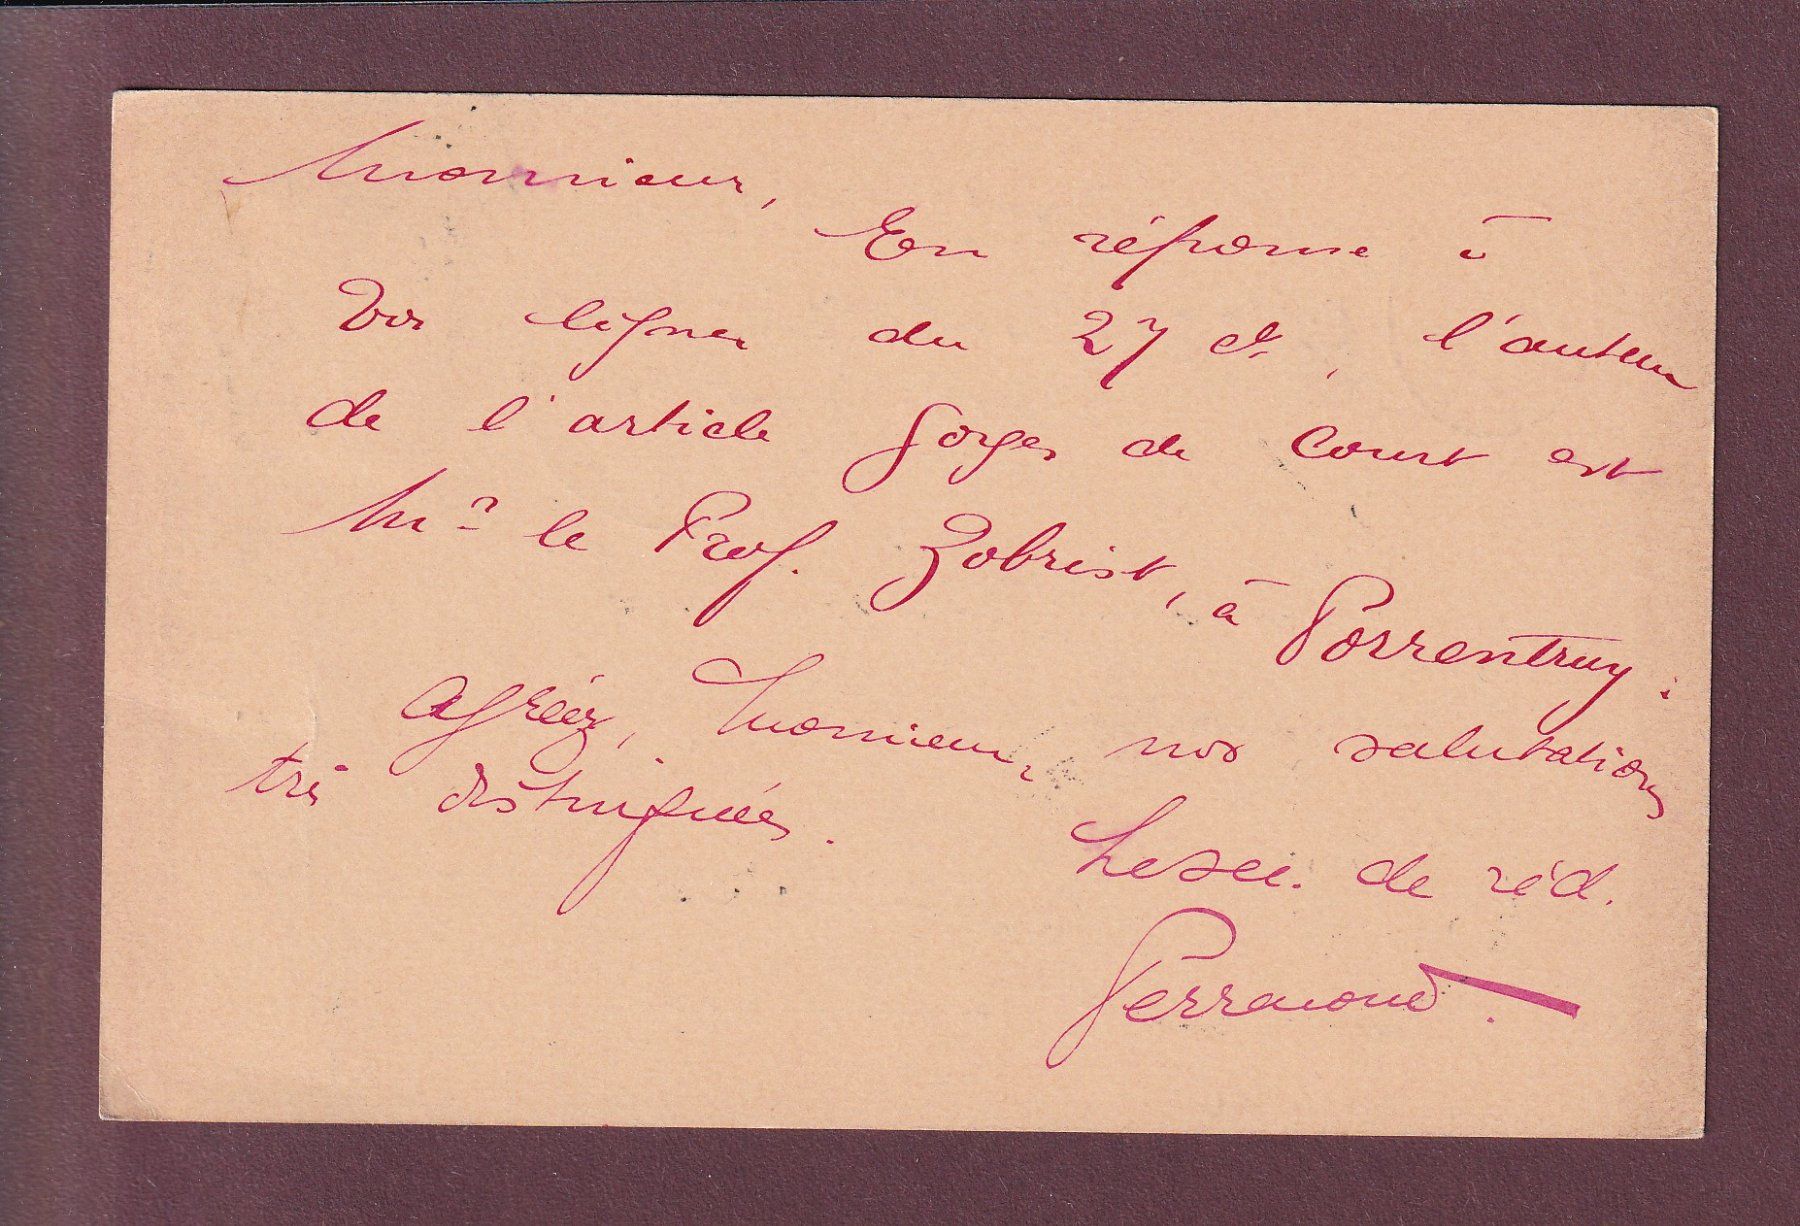 Monsieur,
En réponse à
vos lignes du 27 ct, l'auteur
de l'article Gorges de Court est
Mr le Prof. Zobrist, à Porrentruy.
Agréez, Monsieur, nos salutations
très distinguées.
Le Secr. de réd.